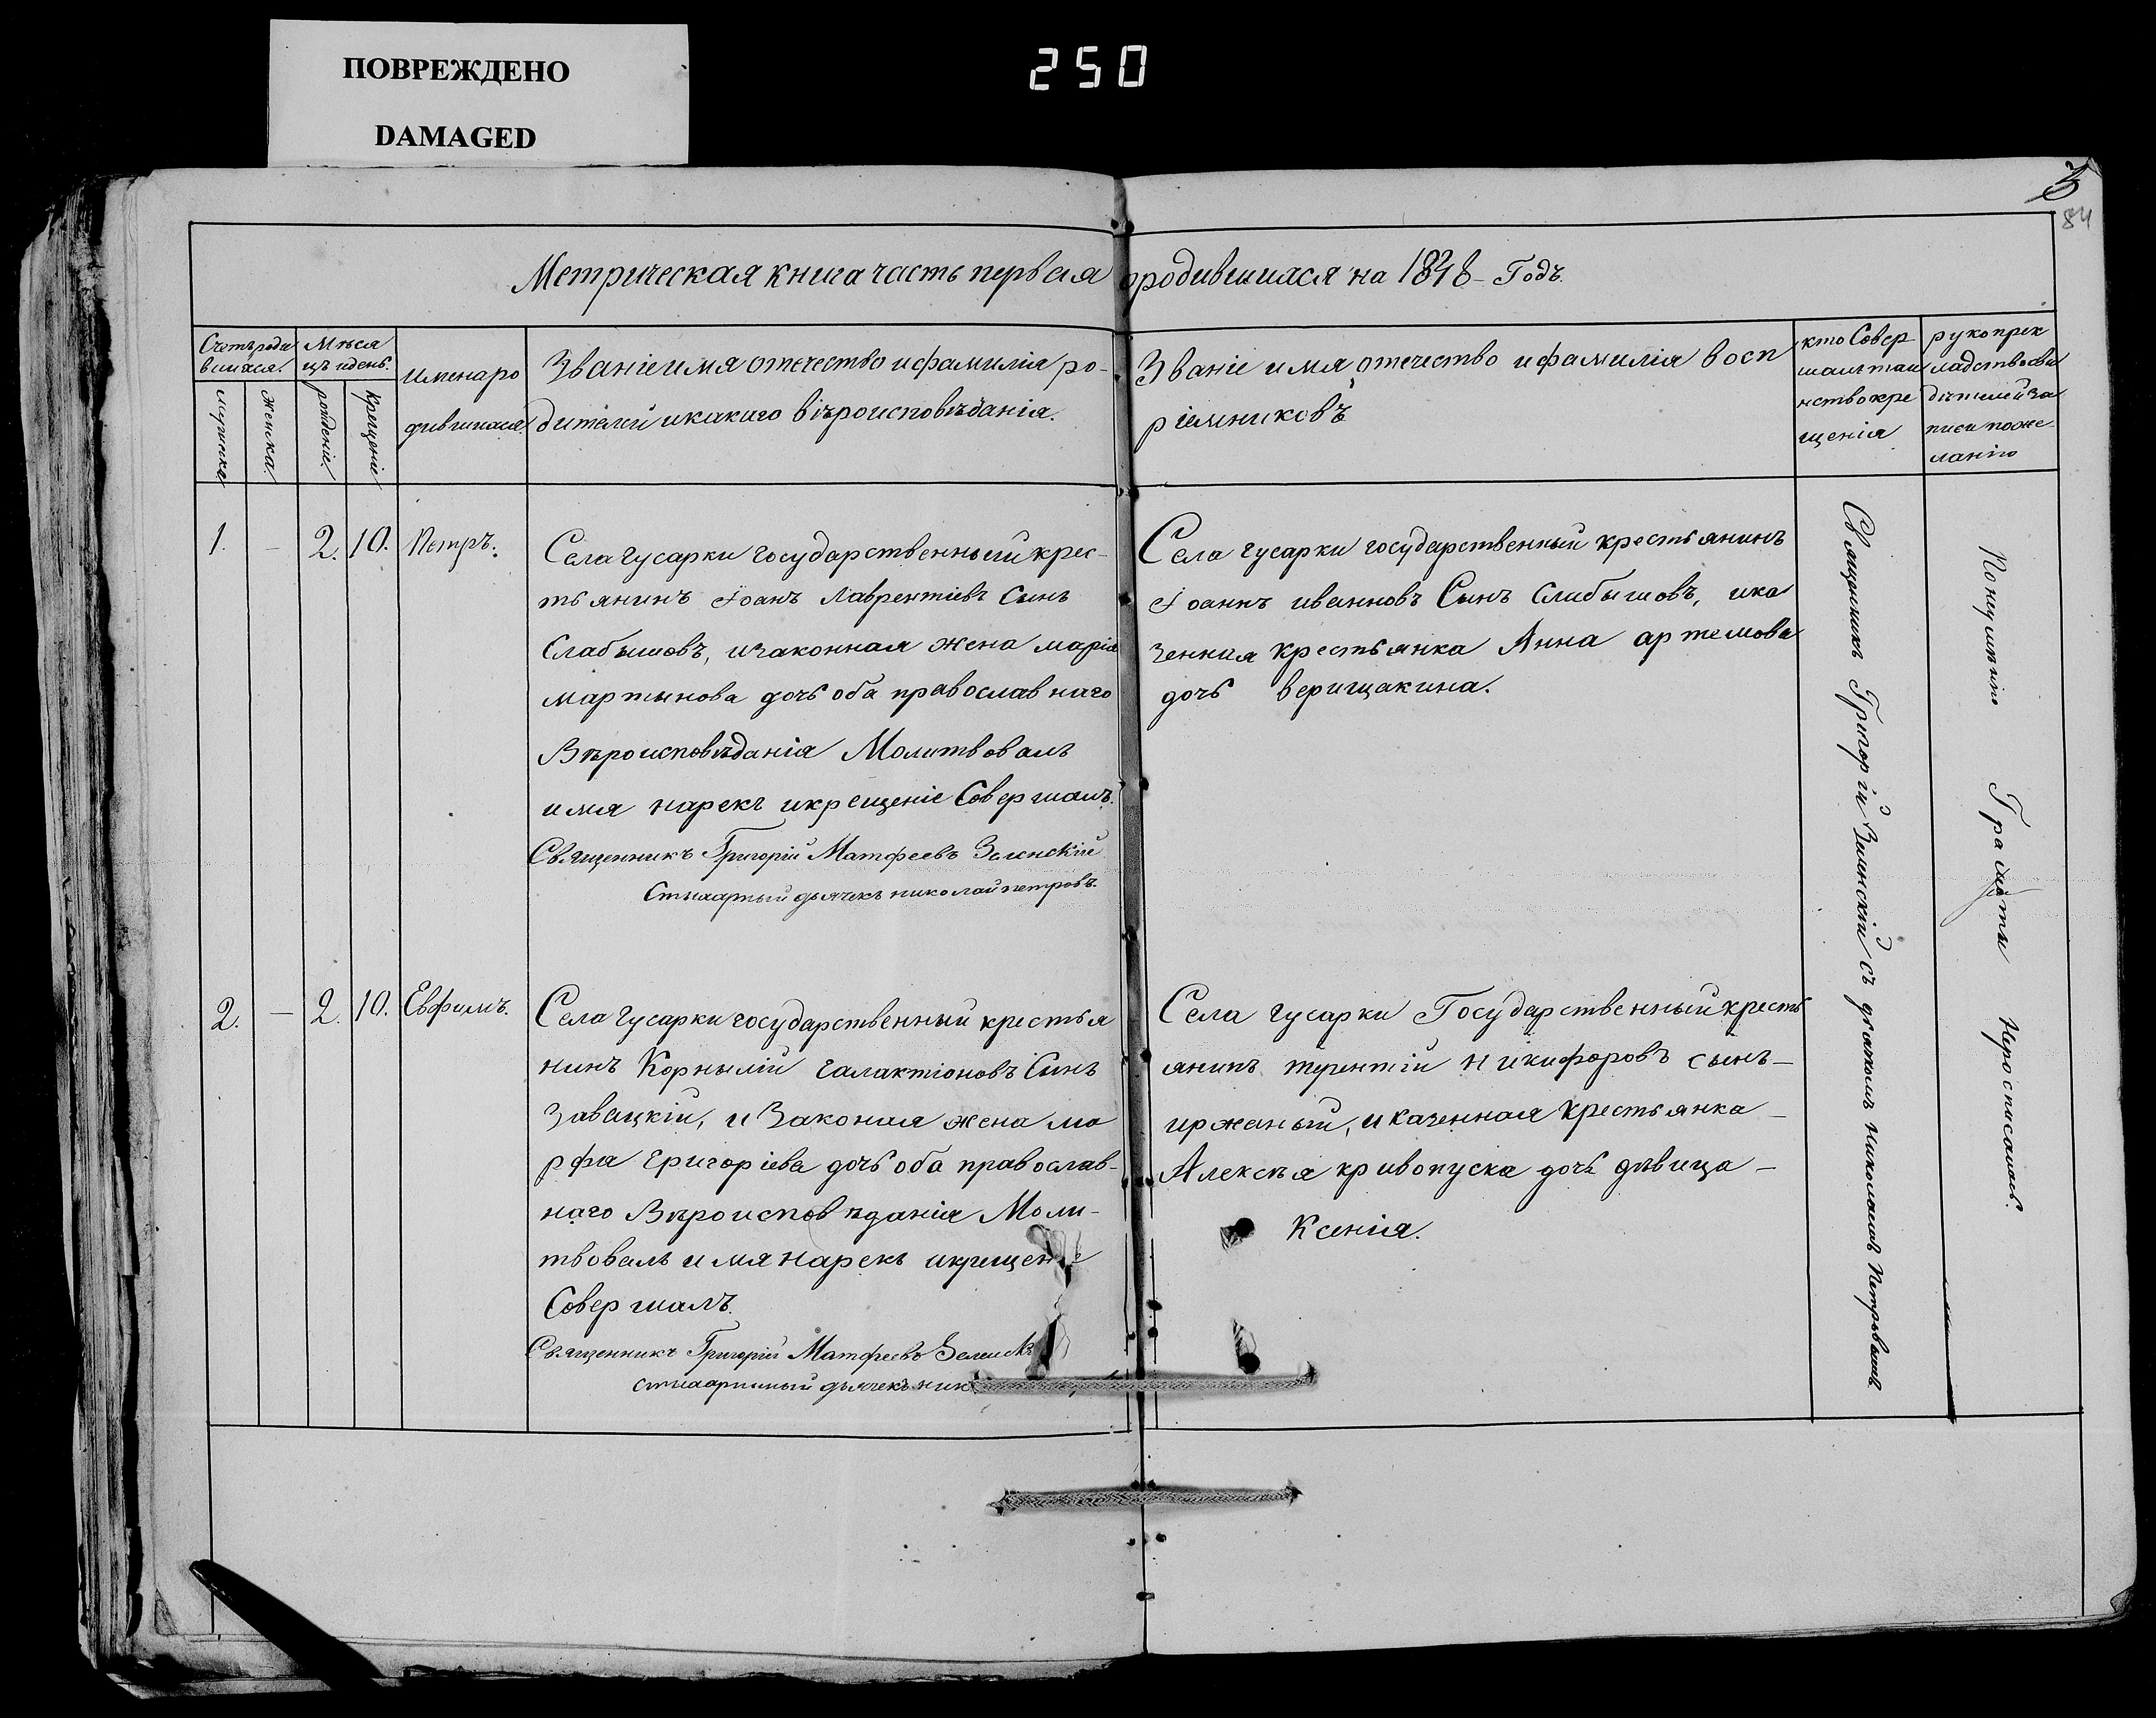 ПОВРЕЖДЕНО
DAMAGED
250
3
84
Метрическая книга часть первая ородившихся на 1848 - Годъ.
Счетъ роди
вшихся.
Мѣся
цъ идень.
мужиска
женска
рождение
крещеніе
имена ро
дившихся.
Званіе имя отечество ифамилія ро-
дителей икакаго вѣроисповѣданія.
Званіе имя отечество ифамилія восп
ріемниковъ
кто Совер
шалъ таи
нство кре
щенія
рукоприк
ладство сви
дѣтелей за
писи по же
ланію
1. - 2. 10. Петръ.
Села гусарки государственный крес-
тьянинъ Іоанъ Лаврентіевъ Сынъ
Слабышовъ, изаконная жена марія
мартынова дочь оба православнаго
Вѣроисповѣданія Молитвовалъ
имя нарекъ икрещеніе Совершалъ.
Священникъ Григорій Матфеевъ Зеленскій
Стихарный дьячекъ николай петровъ.
Села гусарки государственный крестьянинъ
Іоаннъ иванновъ Сынъ Слибышовъ, ика
зенная крестьянка Анна артемова
дочь верищакина.
2. - 2. 10. Евфимъ.
Села гусарки государственный крестья
нинъ Корнылій галактіоновъ Сынъ
Завацкій, и Законая жена ма
рфа григоріева дочь оба православ-
наго Вѣроисповѣданія Моли-
твовалъ имя нарекъ икрещен
Совершалъ.
Священникъ Григорій Матфеевъ Зеленск
стихарный дьячекъ ник
Села гусарки Государственный кресть
янинъ терентій никифоровъ сынъ -
иржаный, иказенная крестьянка -
Алексѣя кривопуска дочь дѣвица -
Ксенія.
Священникъ Григорій Зеленскій съ дьячкомъ николаемъ Петровымъ
По неумѣнію Грамоты Неросписалась.